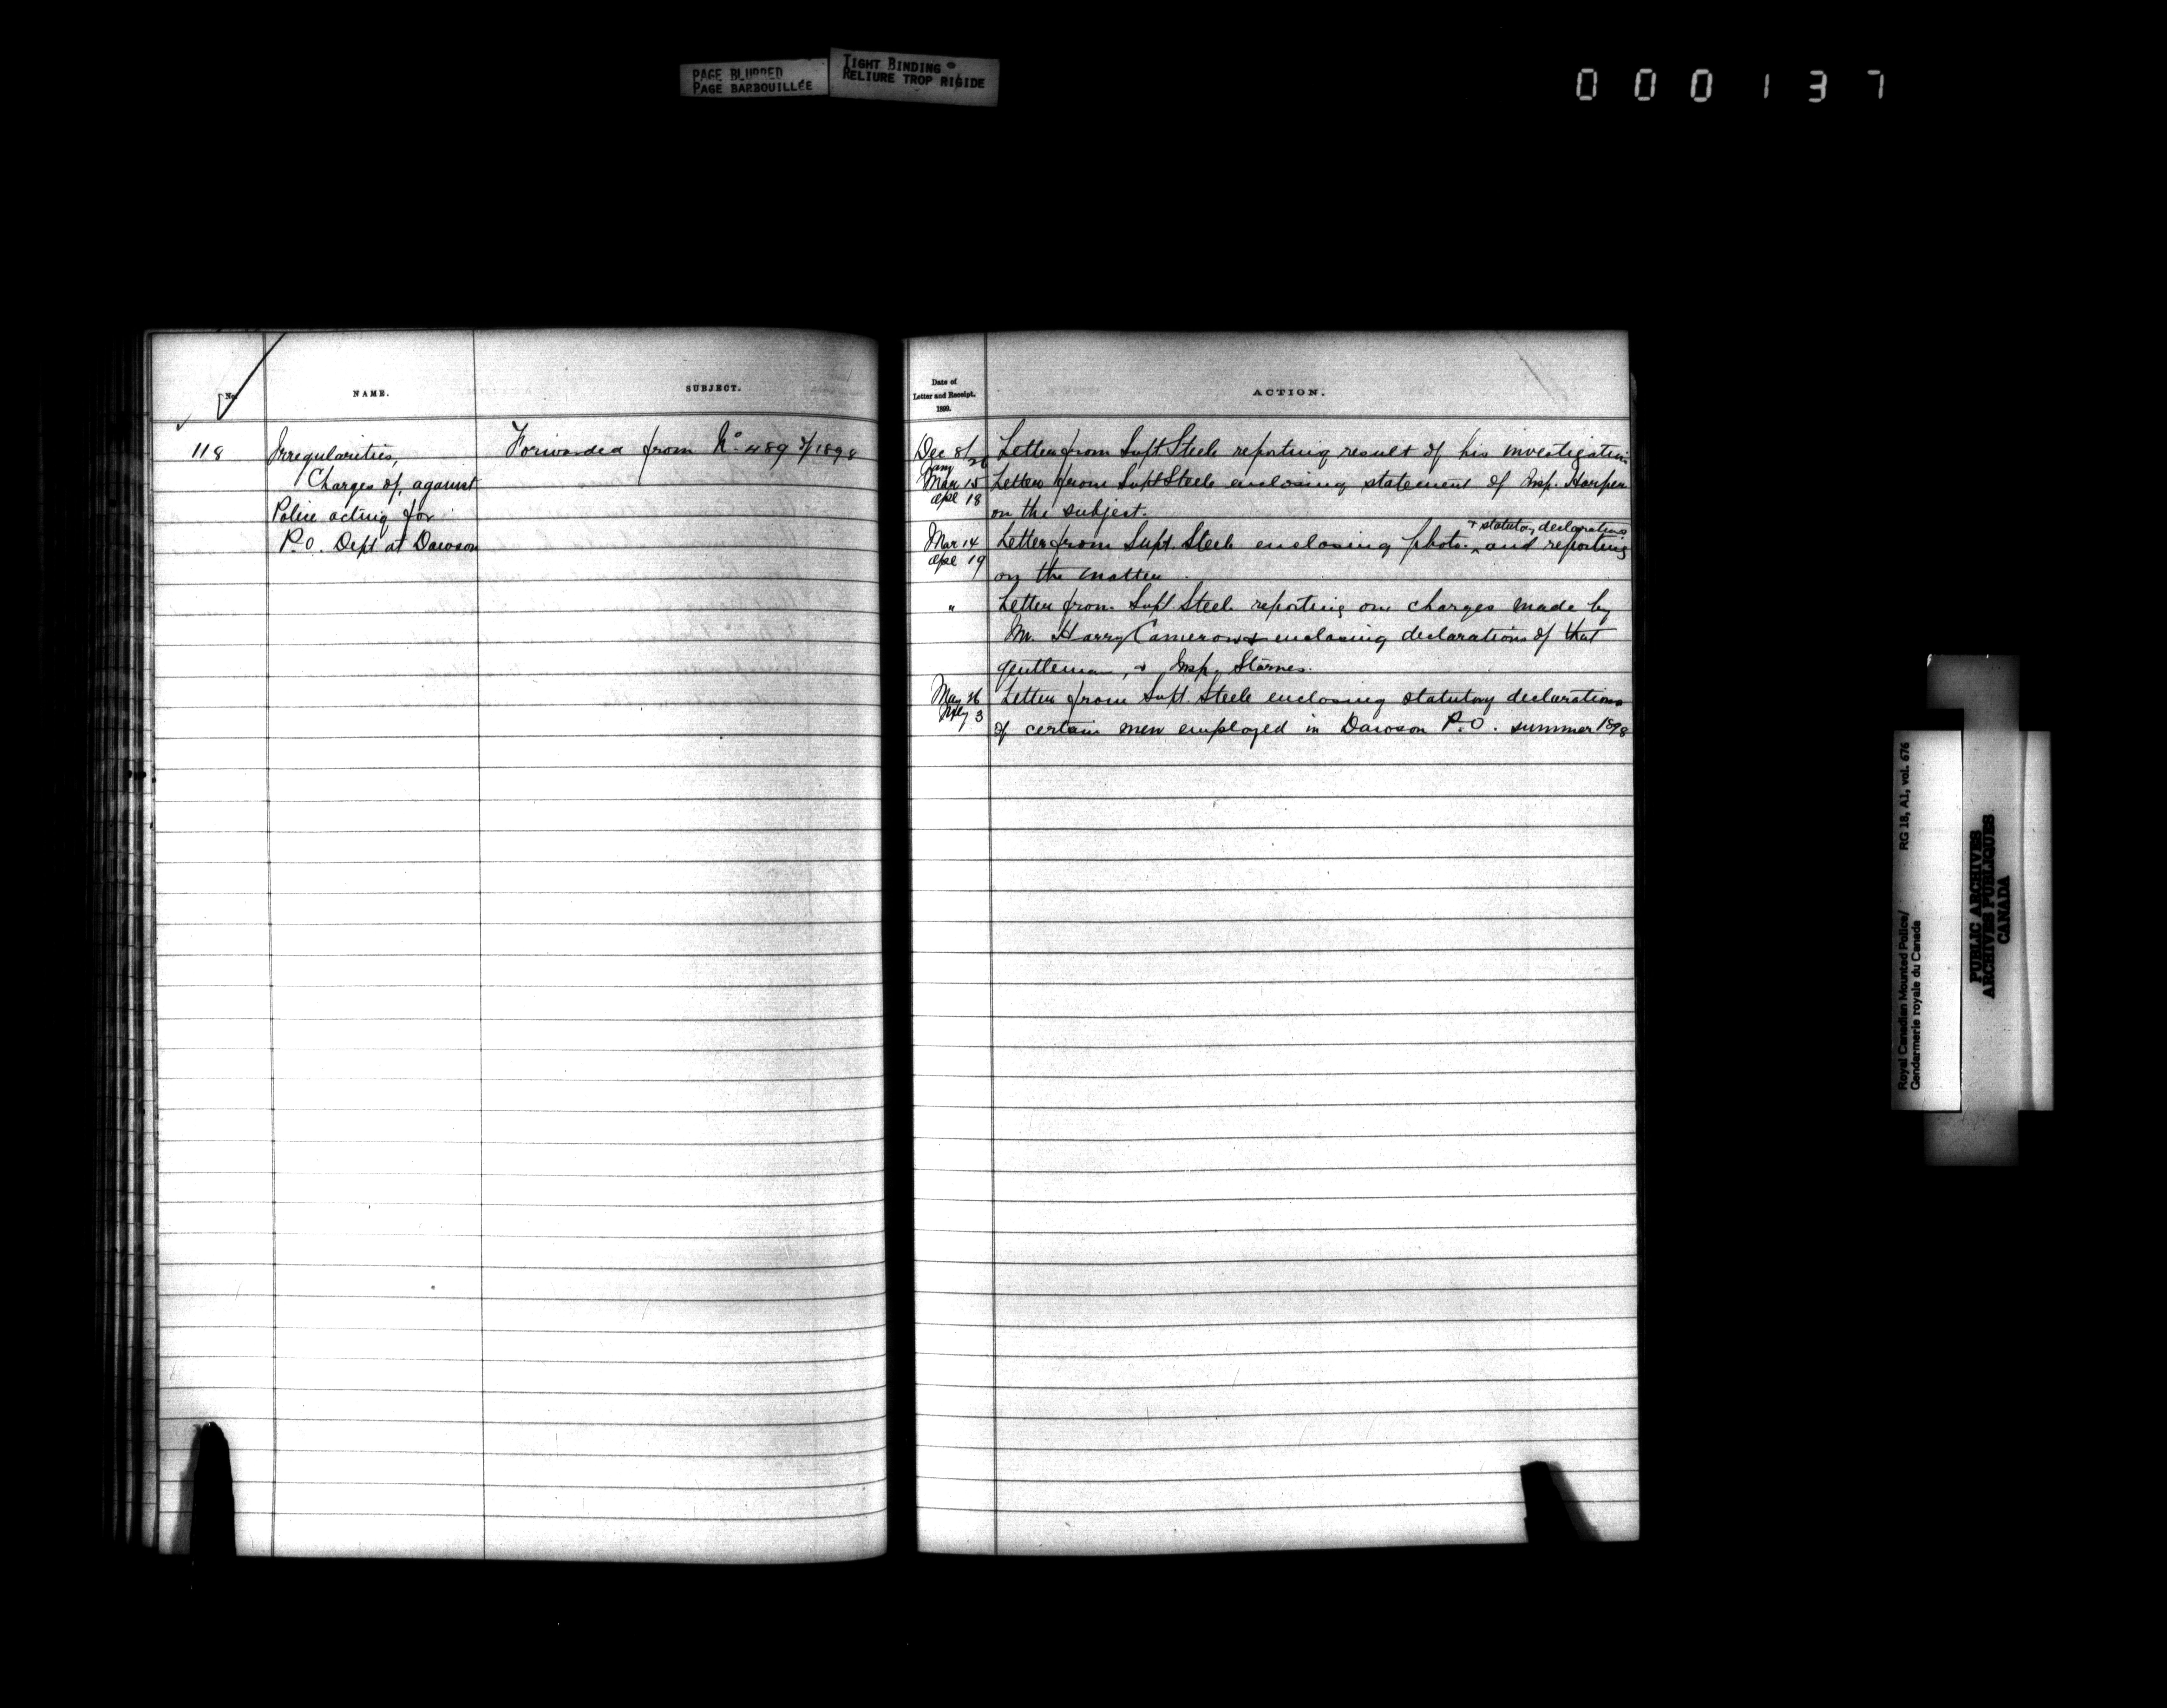 PAGE BLURRED
PAGE BARBOUILLÉE
TIGHT BINDING
RELIURE TROP RIGIDE
000137
No.
NAME.
SUBJECT.
118
Irregularities,
Charges of, against
Police acting for
P.O. Dept at Dawson
Forwarded from No. 489 of/1898
Date of
Letter and Receipt.
1899.
ACTION.
Dec 8/
Jany 26
Letter from Supt Steele reporting result of his investigation
Mar 15
Apl 18
Letter from Supt Steele enclosing statement of Insp. Harper
on the subject.
Mar 14
Apl 19
Letter from Supt. Steele enclosing photo. ^ & statutory declarations and reporting
on the matter.
"
Letter from Supt. Steele reporting on charges made by
Mr. Harry Cameron & enclosing declarations of that
gentleman, & Insp. Starnes.
May 26
July 3
Letter from Supt. Steele enclosing statutory declarations
of certain men employed in Dawson P.O. summer 1898
Royal Canadian Mounted Police/
Gendarmerie royale du Canada
RG 18, A1, vol. 676
PUBLIC ARCHIVES
ARCHIVES PUBLIQUES
CANADA